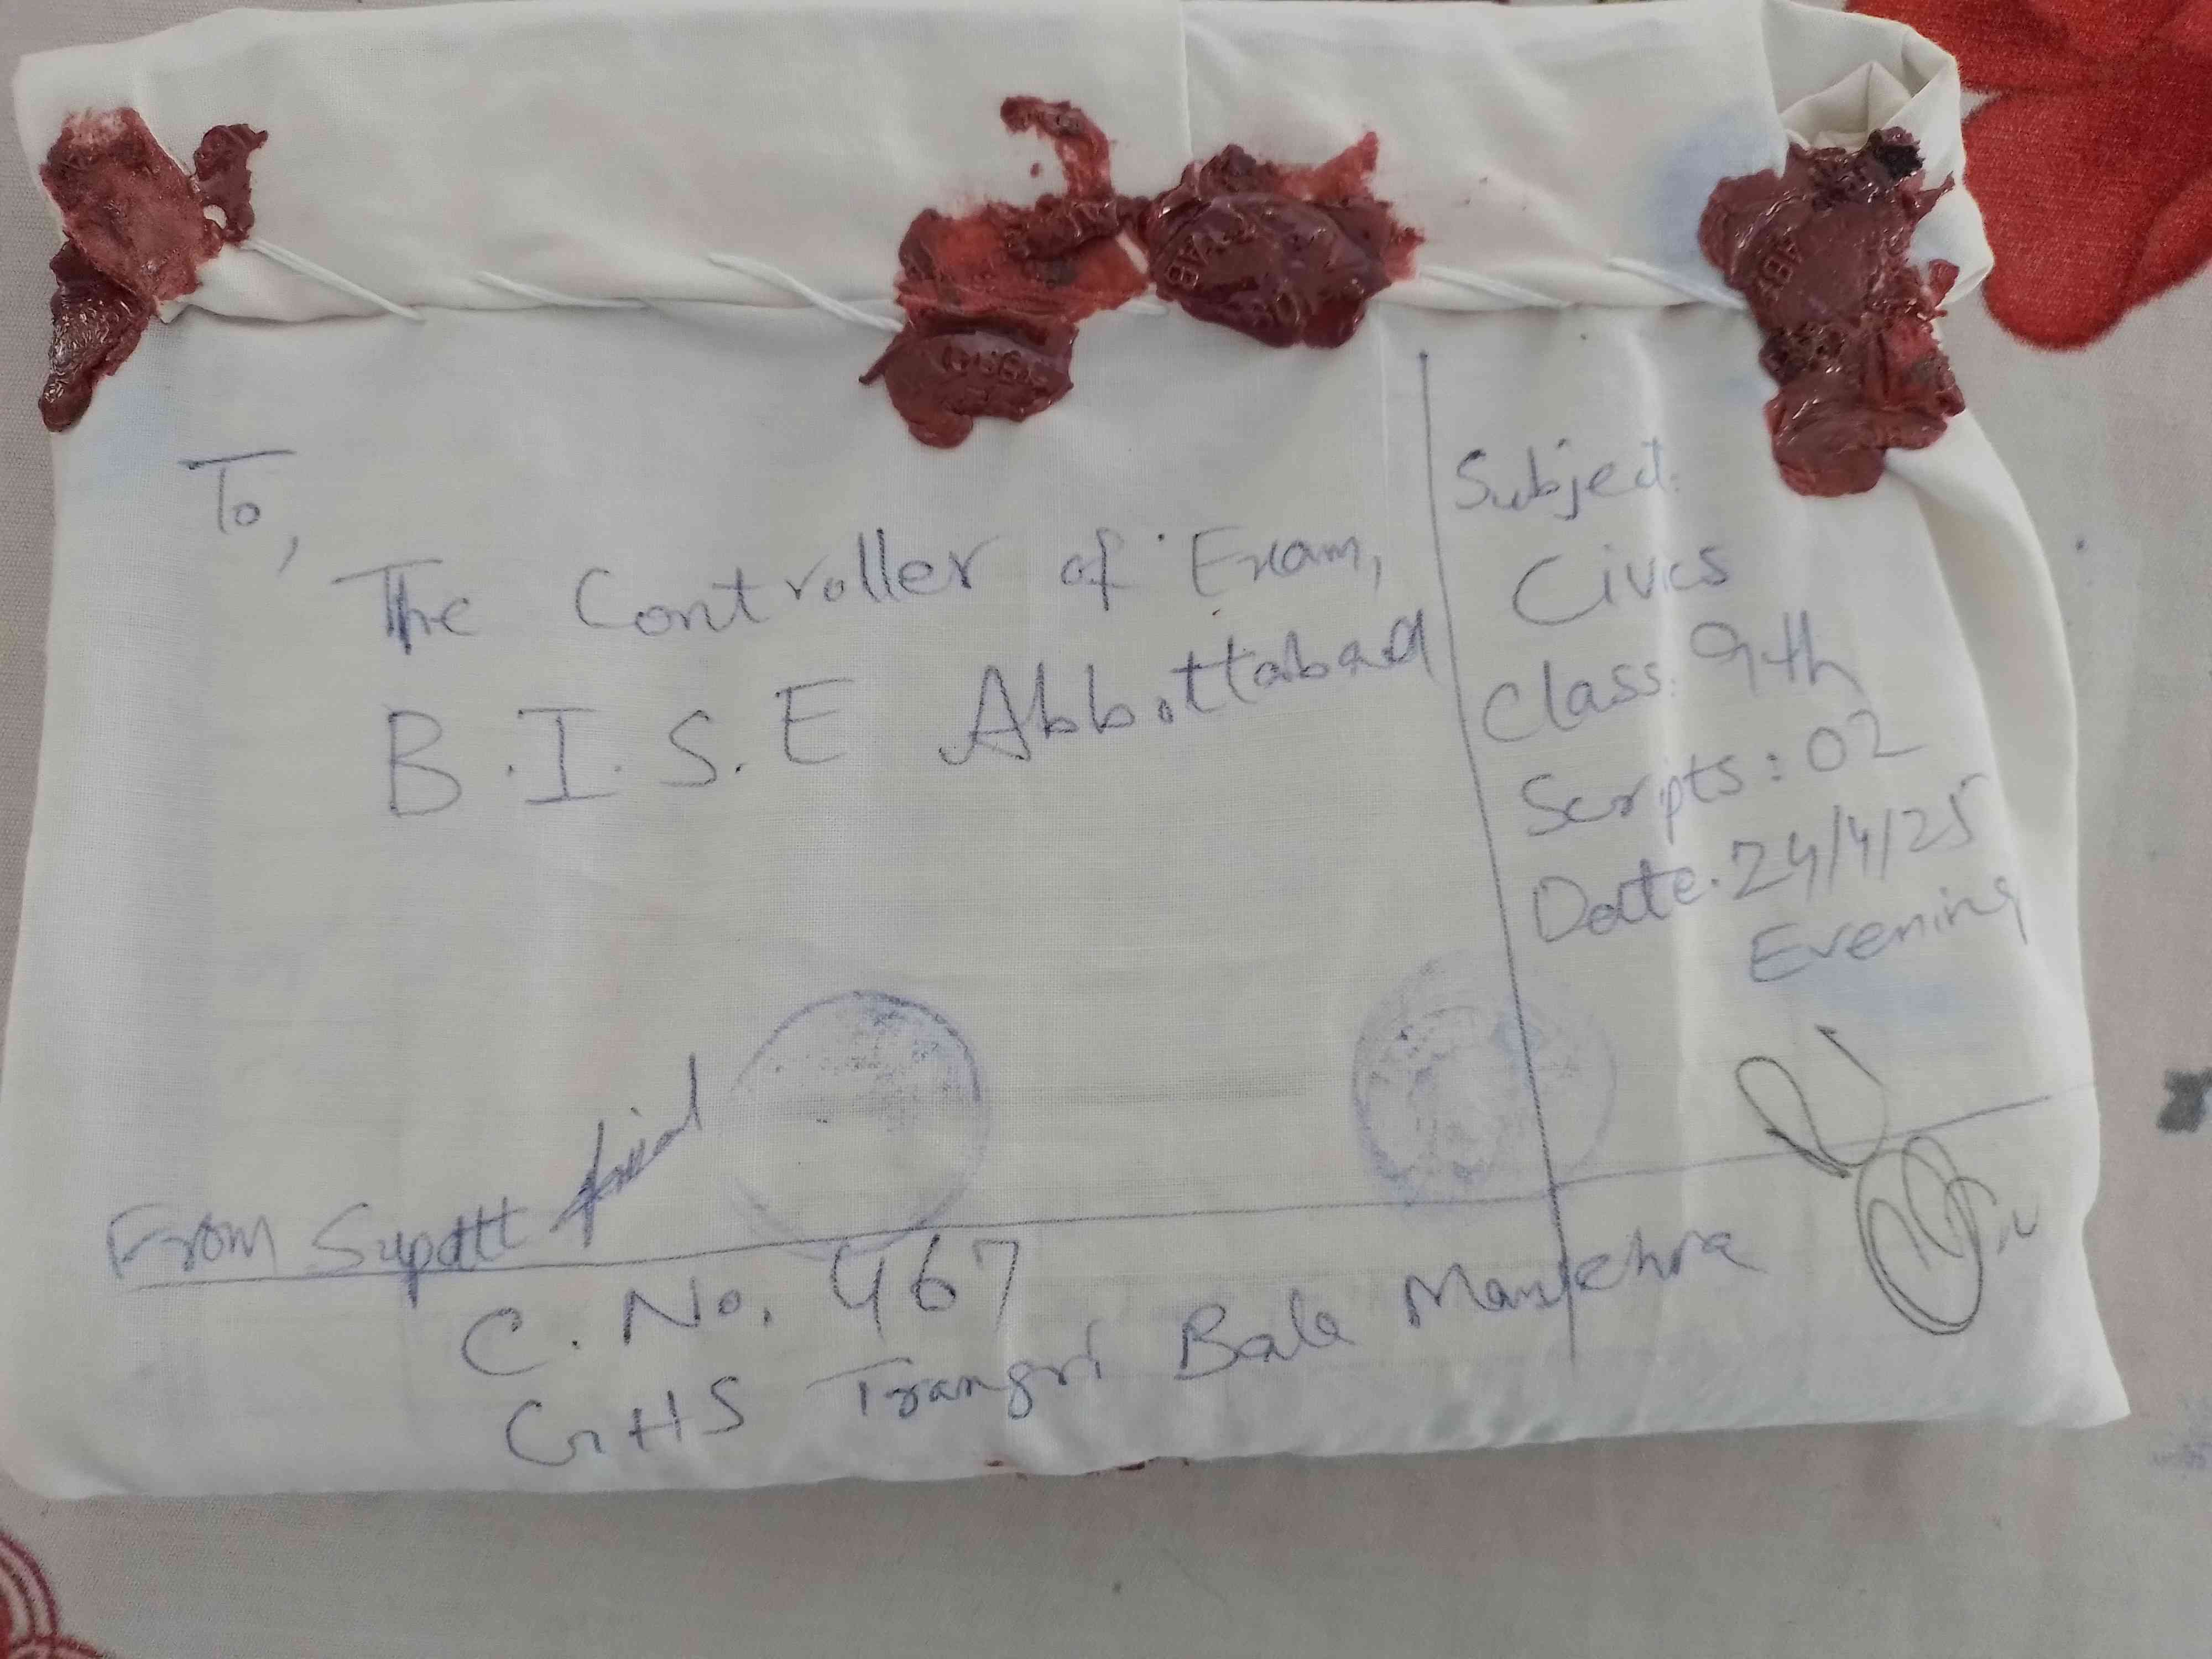 To,
The Controller of Exam,
B.I.S.E Abbottabad
Subject:
Civics
Class: 9th
Scripts: 02
Date. 24/4/25
Evening
From Supdtt
C. No. 467
GHS Trangri Bala Mansehra